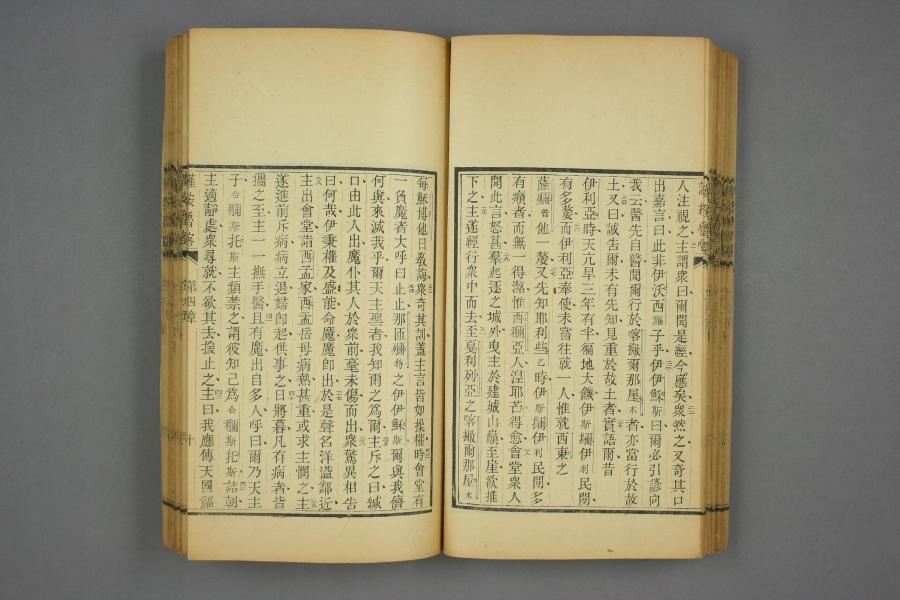 人注視之主謂衆曰爾聞是經今應矣衆然之又奇其口
出嘉言曰此非伊沃西龎子乎伊伊穌斯曰爾必引諺向
我云醫先自醫聞爾行於喀撇爾那屋木者亦當行於故
土又曰誠告爾未有先知見重於故土者實語爾昔
伊利亞時天亢旱三年有半徧地大饑伊斯爾伊利民閒
有多嫠而伊利亞奉使未嘗往就一人惟就西東之
薩爾他一嫠又先知耶利些乙時伊斯爾伊利民閒多
有癩者而無一得潔惟西爾亞人湼耶曼得愈會堂衆人
聞此言怒甚羣起逐之城外曳主於建城山巔至崖欲推
下之主遂經行衆中而去至戞利列亞之喀撇爾那屋木
每穌博他日教誨衆奇其訓蓋主言皆如操權時會堂有
一負魔者大呼曰止止那匝爾特之伊伊穌斯爾與我儕
何與來滅我乎爾天主聖者我知爾之爲爾主斥之曰緘
口由此人出魔仆其人於衆前毫未傷而出衆驚異相告
曰何哉伊秉權及盛能命魔魔卽出於是聲名洋溢鄰近
主出會堂詣西孟家西孟岳母病熱甚重或求主憫之主
遂進前斥病病立退婦卽起供事之日將暮凡有病者皆
攜之至主一一撫手醫且有魔出自多人呼曰爾乃天主
子合爾斯托斯主類禁之謂彼知己爲合爾斯托斯詰朝
主適靜處衆尋就不欲其去援止之主曰我應傳天國福
第四章
十